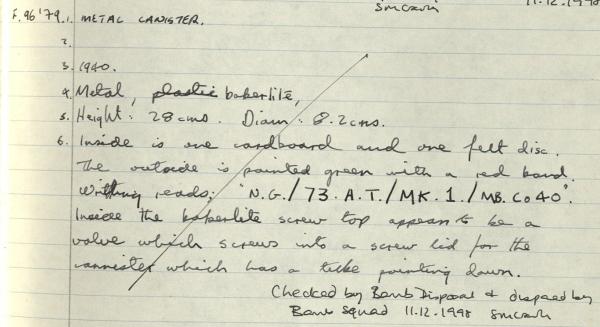 11.12.1998
F.96'79.1. METAL CANISTER.
2.
3. 1940.
4. Metal, plastic bakerlite,
5. Height: 28cms. Diam: 8.2cms.
6. Inside is one cardboard and one felt disc.
The outside is painted green with a red band.
Writing reads: "N.G./73.A.T./MK.1/MB.Co40".
Inside the bakerlite screw top appears to be a
valve which screws into a screw lid for the
cannister which has a tube pointing down.
Checked by Bomb Disposal & disposed by
Bomb Squad 11.12.1998